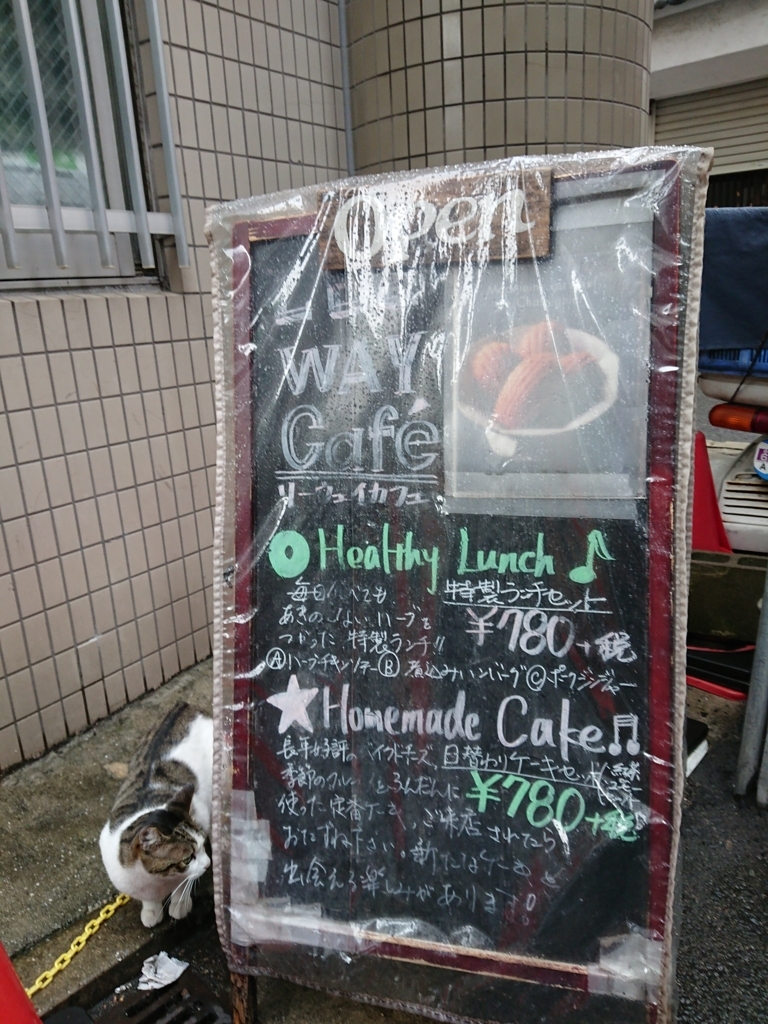 Open
WAY
Café
リーウェイカフェ
Healthy Lunch
毎日食べても
あきのこないハーブを
つかった特製ランチ!!
特製ランチセット
¥780+税
Ⓐハーブチキンソテー Ⓑ煮込みハンバーグ Ⓒポークジンジャー
Homemade Cake
長年好評の ベイクドチーズ、
季節のフルーツをふんだんに
使った定番ケーキ、ご来店されたら
おたずね下さい。新たなケーキと
出会える楽しみがあります!
日替わりケーキセット
¥780+税
紅茶
コーヒー